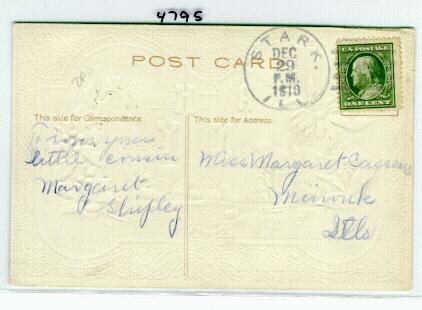 4795
POST CARD
STARK.
DEC
29
P.M.
1910
ILL.
U.S. POSTAGE
ONE CENT
This side for Correspondence.
This side for Address.
From your
little cousin
Margaret
Shipley
Miss Margaret
Minonk
Ills